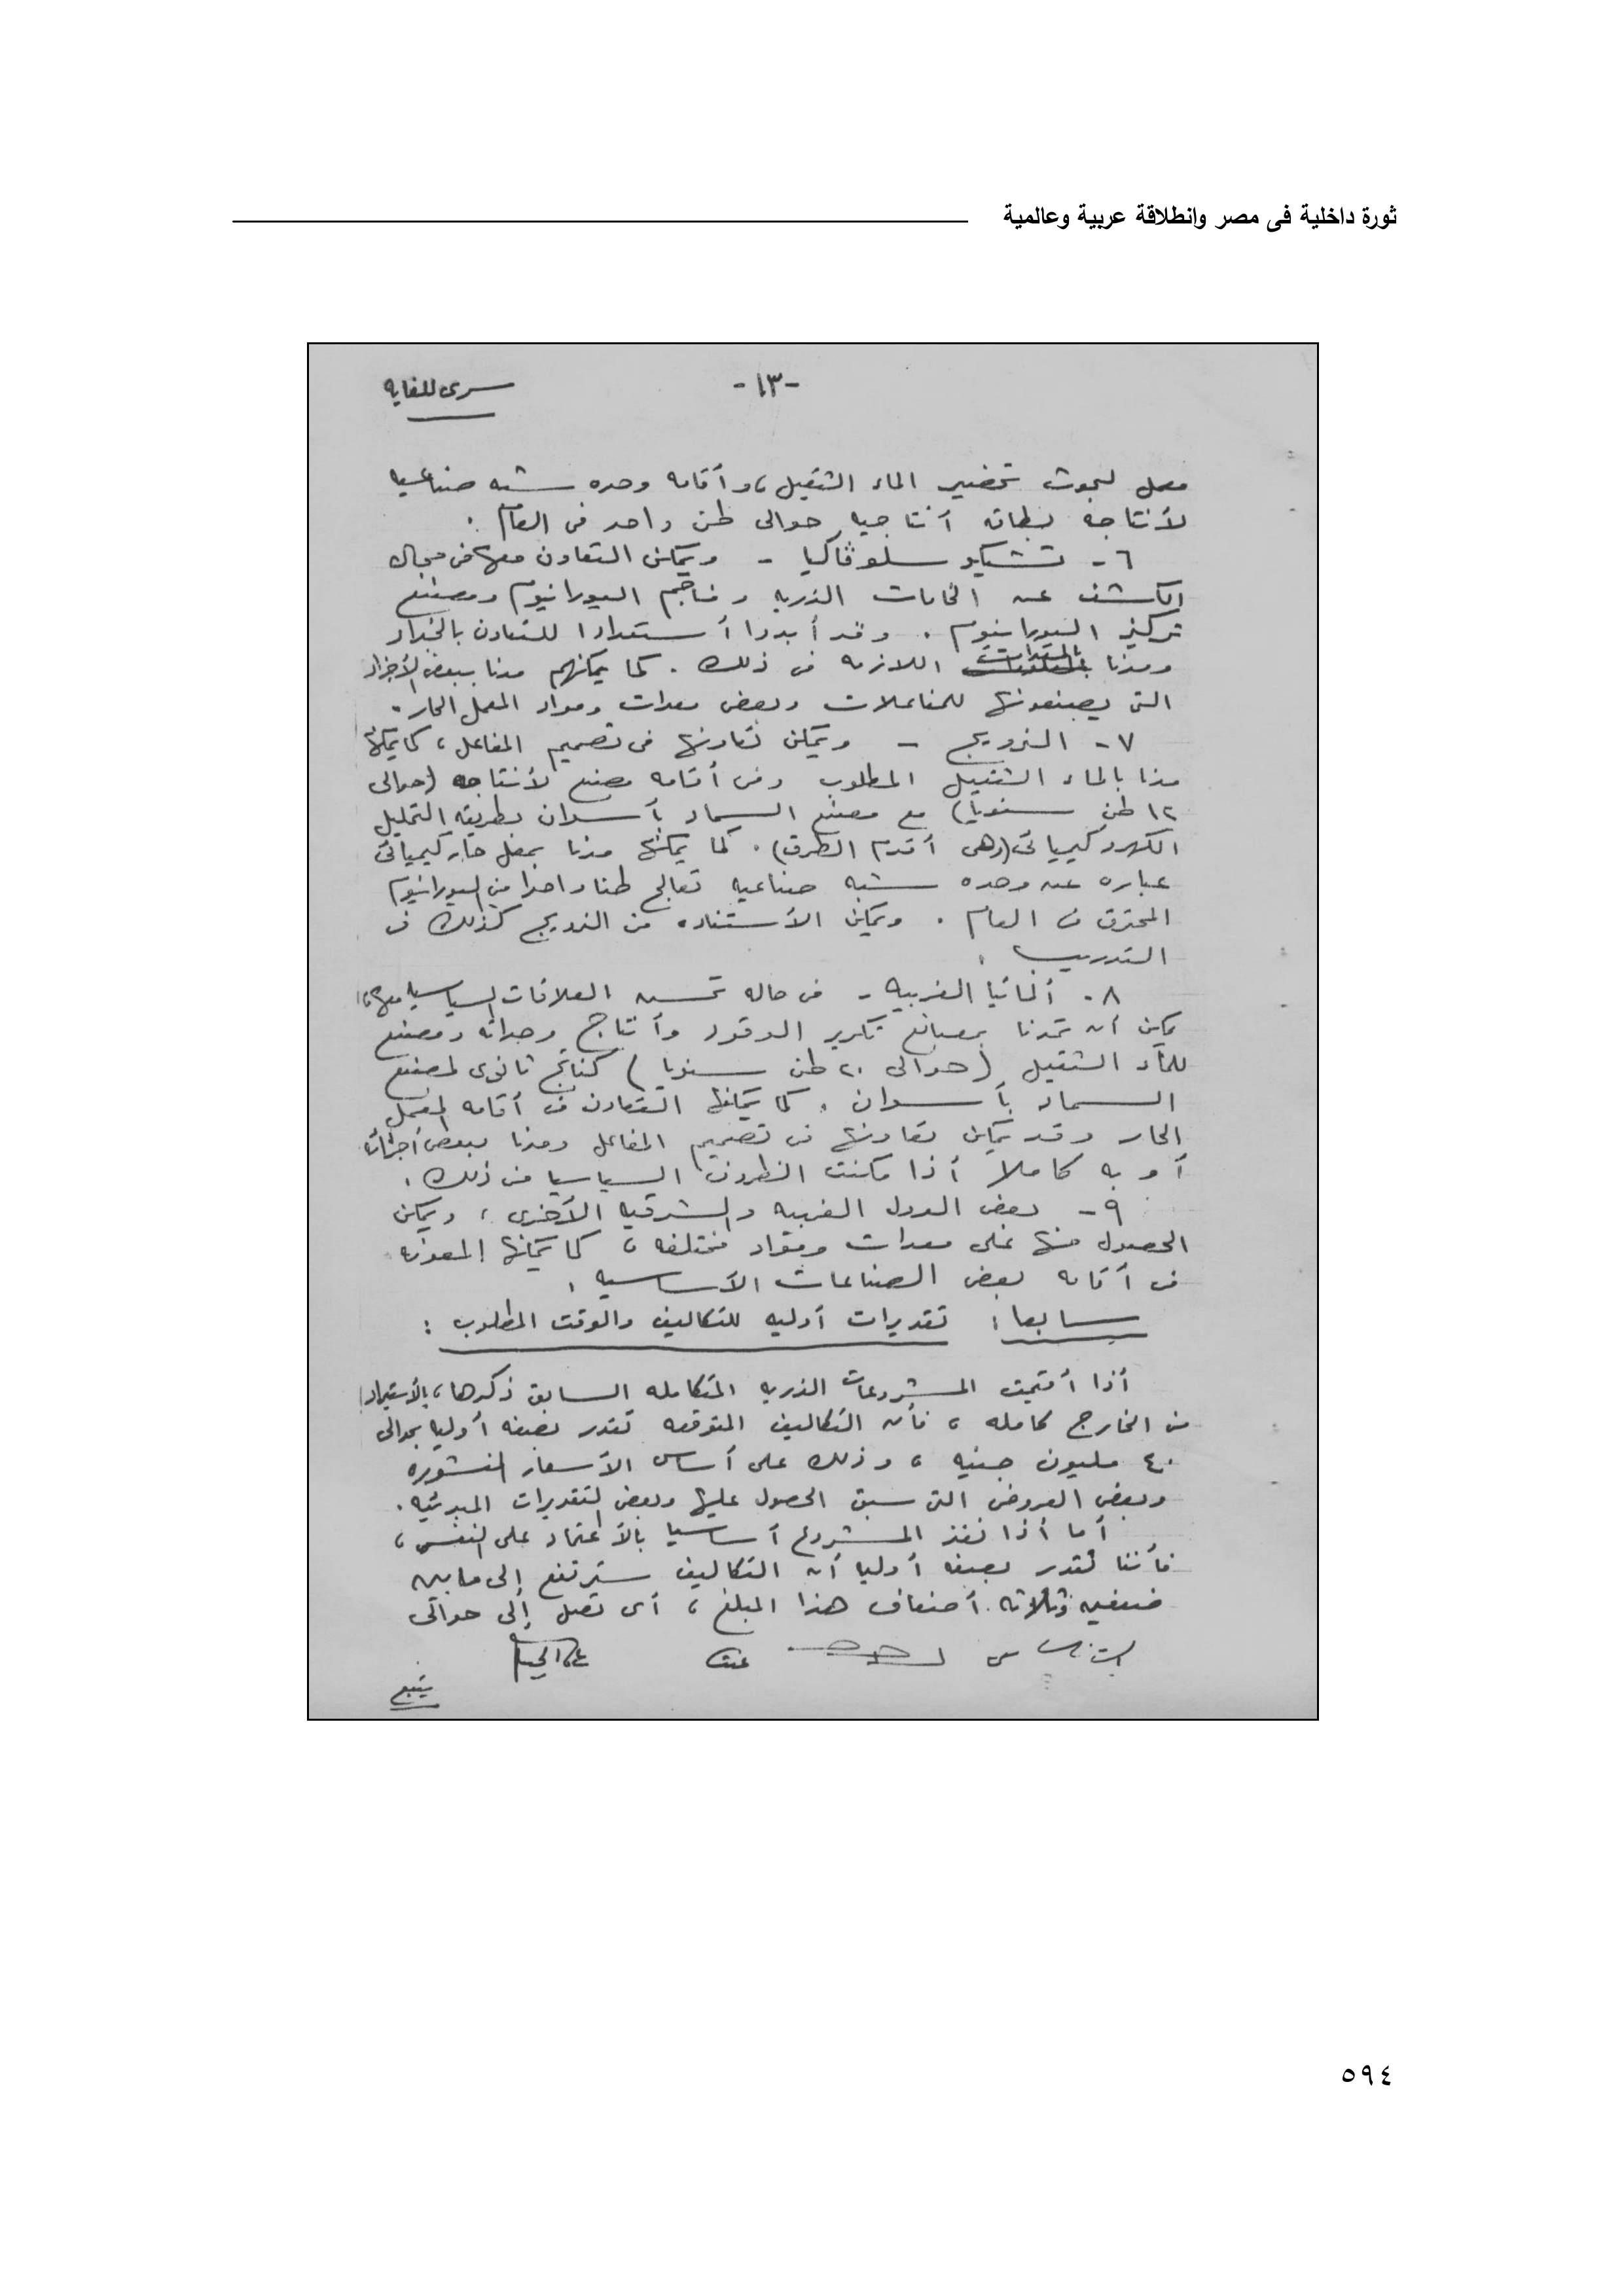 ثورة داخلية فى مصر وانطلاقة عربية وعالمية
-١٣-
سرى للغايه
معمل لبحوث تحضير الماء الثقيل، وأقامه وحده شبه صناعيه
لأنتاجه بطاقه أنتاجيه حوالى طن واحد فى العام .
٦- تشيكوسلوڤاكيا - ويمكن التعاون معها فى مجال
الكشف عن الخامات الذريه ومناجم اليورانيوم ومصنع
تركيز اليورانيوم . وقد أبدوا أستعدادا للتعاون بالخبراء
ومدنا بالمعدات اللازمه فى ذلك . كما يمكنهم مدنا ببعض الأجزاء
التى يصنعونها للمفاعلات وبعض معدات ومواد المعمل الحار .
٧- النرويج - ويمكن تعاونها فى تصميم المفاعل، كما يمكنها
مدنا بالماء الثقيل المطلوب وفى أقامه مصنع لأنتاجه (حوالى
١٢ طن سنويا) مع مصنع السماد بأسوان بطريقه التحليل
الكهروكيميائى (وهى أقدم الطرق). كما يمكنها مدنا بمعمل حار كيميائى
عباره عن وحده شبه صناعيه تعالج طنا واحدا من اليورانيوم
المحترق فى العام . ويمكن الأستفاده من النرويج كذلك فى
التدريب .
٨- ألمانيا الغربيه - فى حاله تحسن العلاقات السياسيه معها،
يمكن أن تمدنا بمصانع تكرير الوقود وأنتاج وحداته ومصنع
للماء الثقيل (حوالى ٢٠ طن سنويا) كناتج ثانوى لمصنع
السماد بأسوان . كما يمكنها التعاون فى أقامه المعمل
الحار وقد يمكن تعاونها فى تصميم المفاعل ومدنا ببعض أجزائه
أو به كاملا أذا مكنت الظروف السياسيه من ذلك .
٩- بعض الدول الغربيه والشرقيه الأخرى، ويمكن
الحصول منها على معدات ومواد مختلفه، كما يمكنها المعونه
فى أقامه بعض الصناعات الأساسيه .
سابعا : تقديرات أوليه للتكاليف والوقت المطلوب :
أذا أقيمت المشروعات الذريه المتكامله السابق ذكرها، بالأستيراد
من الخارج كامله، فأن التكاليف المتوقعه تقدر بصفه أوليه بحوالى
٤٠ مليون جنيه، وذلك على أساس الأسعار المنشوره
وبعض العروض التى سبق الحصول عليها وبعض التقديرات المبدئيه .
أما أذا نفذ المشروع أساسيا بالأعتماد على النفس،
فأننا نقدر بصفه أوليه أن التكاليف سترتفع إلى مابين
ضعفين وثلاثه أضعاف هذا المبلغ، أى تصل إلى حوالى
يتبع
٥٩٤